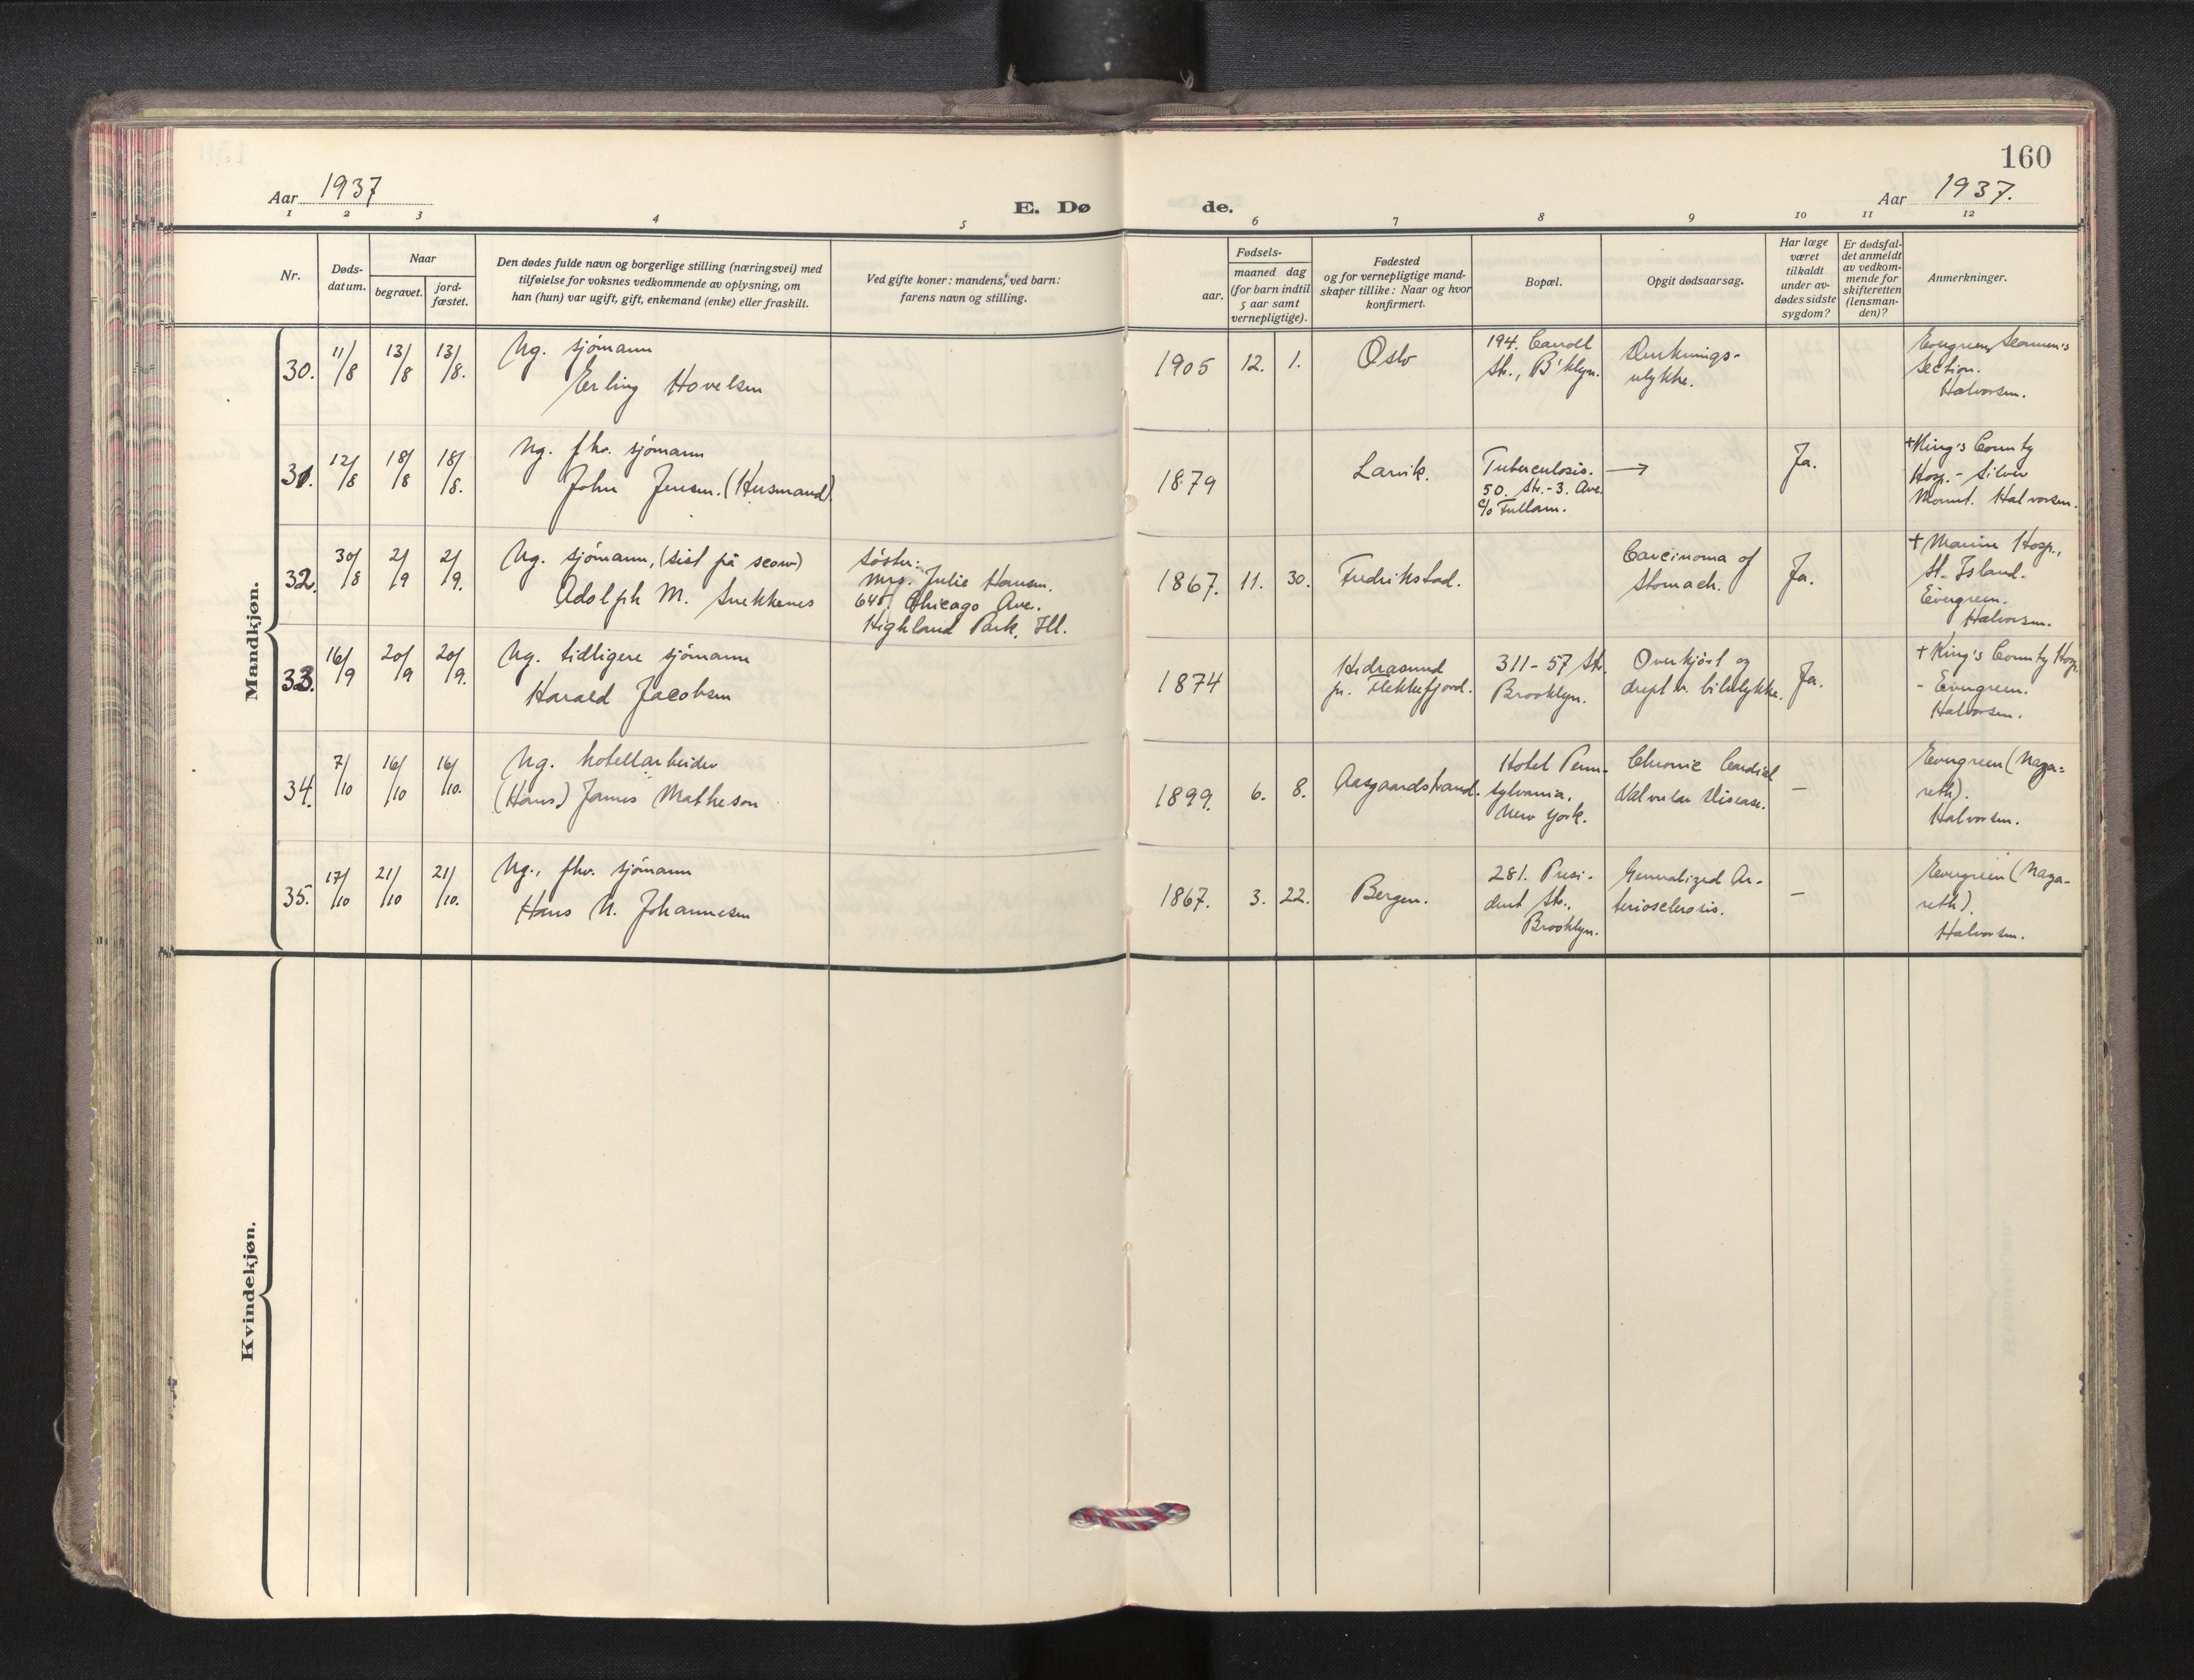 160
Aar 1937
E. Dø de.
Aar 1937.
1 2 3 4 5 6 7 8 9 10 11 12
Nr.
Døds-
datum.
Naar
begravet.
jord-
fæstet.
Den dødes fulde navn og borgerlige stilling (næringsvei) med
tilføielse for voksnes vedkommende av oplysning, om
han (hun) var ugift, gift, enkemand (enke) eller fraskilt.
Ved gifte koner: mandens, ved barn:
farens navn og stilling.
Fødsels-
aar.
maaned dag
(for barn indtil
5 aar samt
vernepligtige).
Fødested
og for vernepligtige mand-
skaper tillike: Naar og hvor
konfirmert.
Bopæl.
Opgit dødsaarsag.
Har læge
været
tilkaldt
under av-
dødes sidste
sygdom?
Er dødsfal-
det anmeldt
av vedkom-
mende for
skifteretten
(lensman-
den)?
Anmerkninger.
Mandkjøn.
30. 11/8 13/8 13/8.
Ug. sjömann
Erling Hovelsen
1905 12. 1.
Oslo
194. Carroll
Str., B'klyn.
Druknings-
ulykke.
Evergreen, Seamen's
Section.
Halvorsen.
31. 12/8 18/8 18/8.
Ug. fhv. sjömann
John Jensen. (Husmand)
1879
Larvik.
Tuberculosis. →
50. Str.-3. Ave.
c/o Fullam.
Ja.
+King's County
Hosp. - Silver
Mount. Halvorsen.
32. 30/8 2/9 2/9.
Ug. sjömann, (sist på scow)
Adolph M. Snekkenes
Söster:
Mrs. Julie Hansen.
648. Chicago Ave.
Highland Park, Ill.
1867. 11. 30.
Fredrikstad.
Carcinoma of
Stomach.
Ja.
+ Marine Hosp.,
St. Island.
Evergreen.
Halvorsen.
33. 16/9 20/9 20/9.
Ug. tidligere sjömann
Harald Jacobsen
1874
Hidrasund
pr. Flekkefjord.
311-57 Str.
Brooklyn.
Overkjört og
drept v. bilulykke.
Ja.
+ King's County Hosp.
- Evergreen.
Halvorsen.
34. 7/10 16/10 16/10.
Ug. hotellarbeider
(Hans) James Matheson
1899. 6. 8.
Aasgaardstrand.
Hotel Penn-
sylvania.
New York.
Chronic Cardial
Valvular Disease.
-
Evergreen (Naza-
reth).
Halvorsen.
35. 17/10 21/10 21/10.
Ug., fhv. sjömann
Hans N. Johannesen
1867. 3. 22.
Bergen.
281. Presi-
dent Str.,
Brooklyn.
Generalized Ar-
teriosclerosis.
-
Evergreen (Naza-
reth).
Halvorsen.
Kvindekjøn.